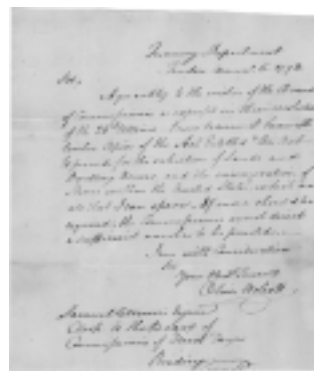 Treasury Department
Trenton 1798
Sir,
Agreeably to the order of the Board
of Commissioners as expressed in
of the 26th I have
twelve Copies of the Act entitled "An Act
to provide for the valuation of Lands and
Dwelling Houses and the enumeration of
Slaves within the United States" which are
all that I can spare. If more should be
required, the Commissioners must direct
a sufficient number to be printed.
I am with Consideration
Sir
Your Obedt Servant
Oliver Wolcott
Samuel Esquire
Clerk to the Board of
Commissioners of Direct Tax
Reading